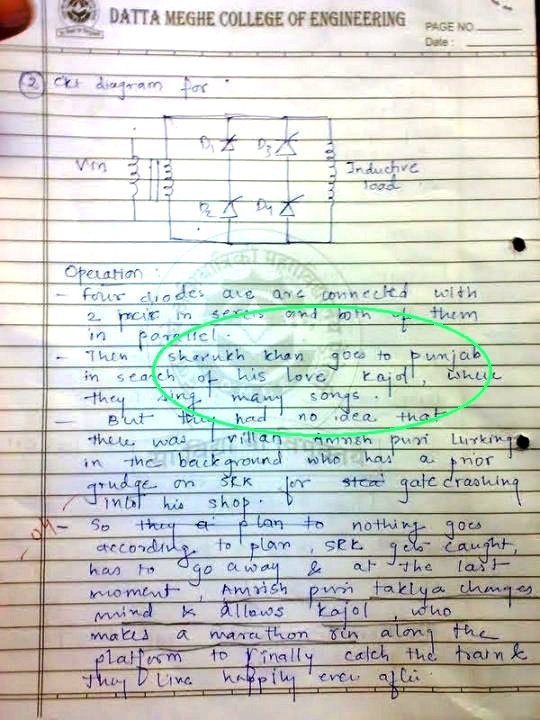 DATTA MEGHE COLLEGE OF ENGINEERING
PAGE NO.
Date :
2 ckt diagram for
Vin
D1
D3
D2
D4
Inductive
load
Operation :
- Four diodes are are connected with
2 pair in series and both of them
in parallel.
- Then sharukh khan goes to punjab
in search of his love, kajol, where
they sing many songs.
- But they had no idea that
there was villan amrish puri lurking
in the background who has a prior
grudge on SRK for gatecrashing
into his shop.
- So they plan to nothing goes
according to plan, SRK gets caught,
has to go away & at the last
moment, Amrish puri taklya changes
mind & allows kajol, who
makes a marathon run along the
platform to finally catch the train &
They live happily ever after.